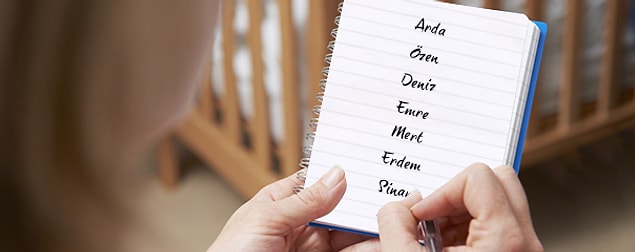 Arda
Özen
Deniz
Emre
Mert
Erdem
Sinan